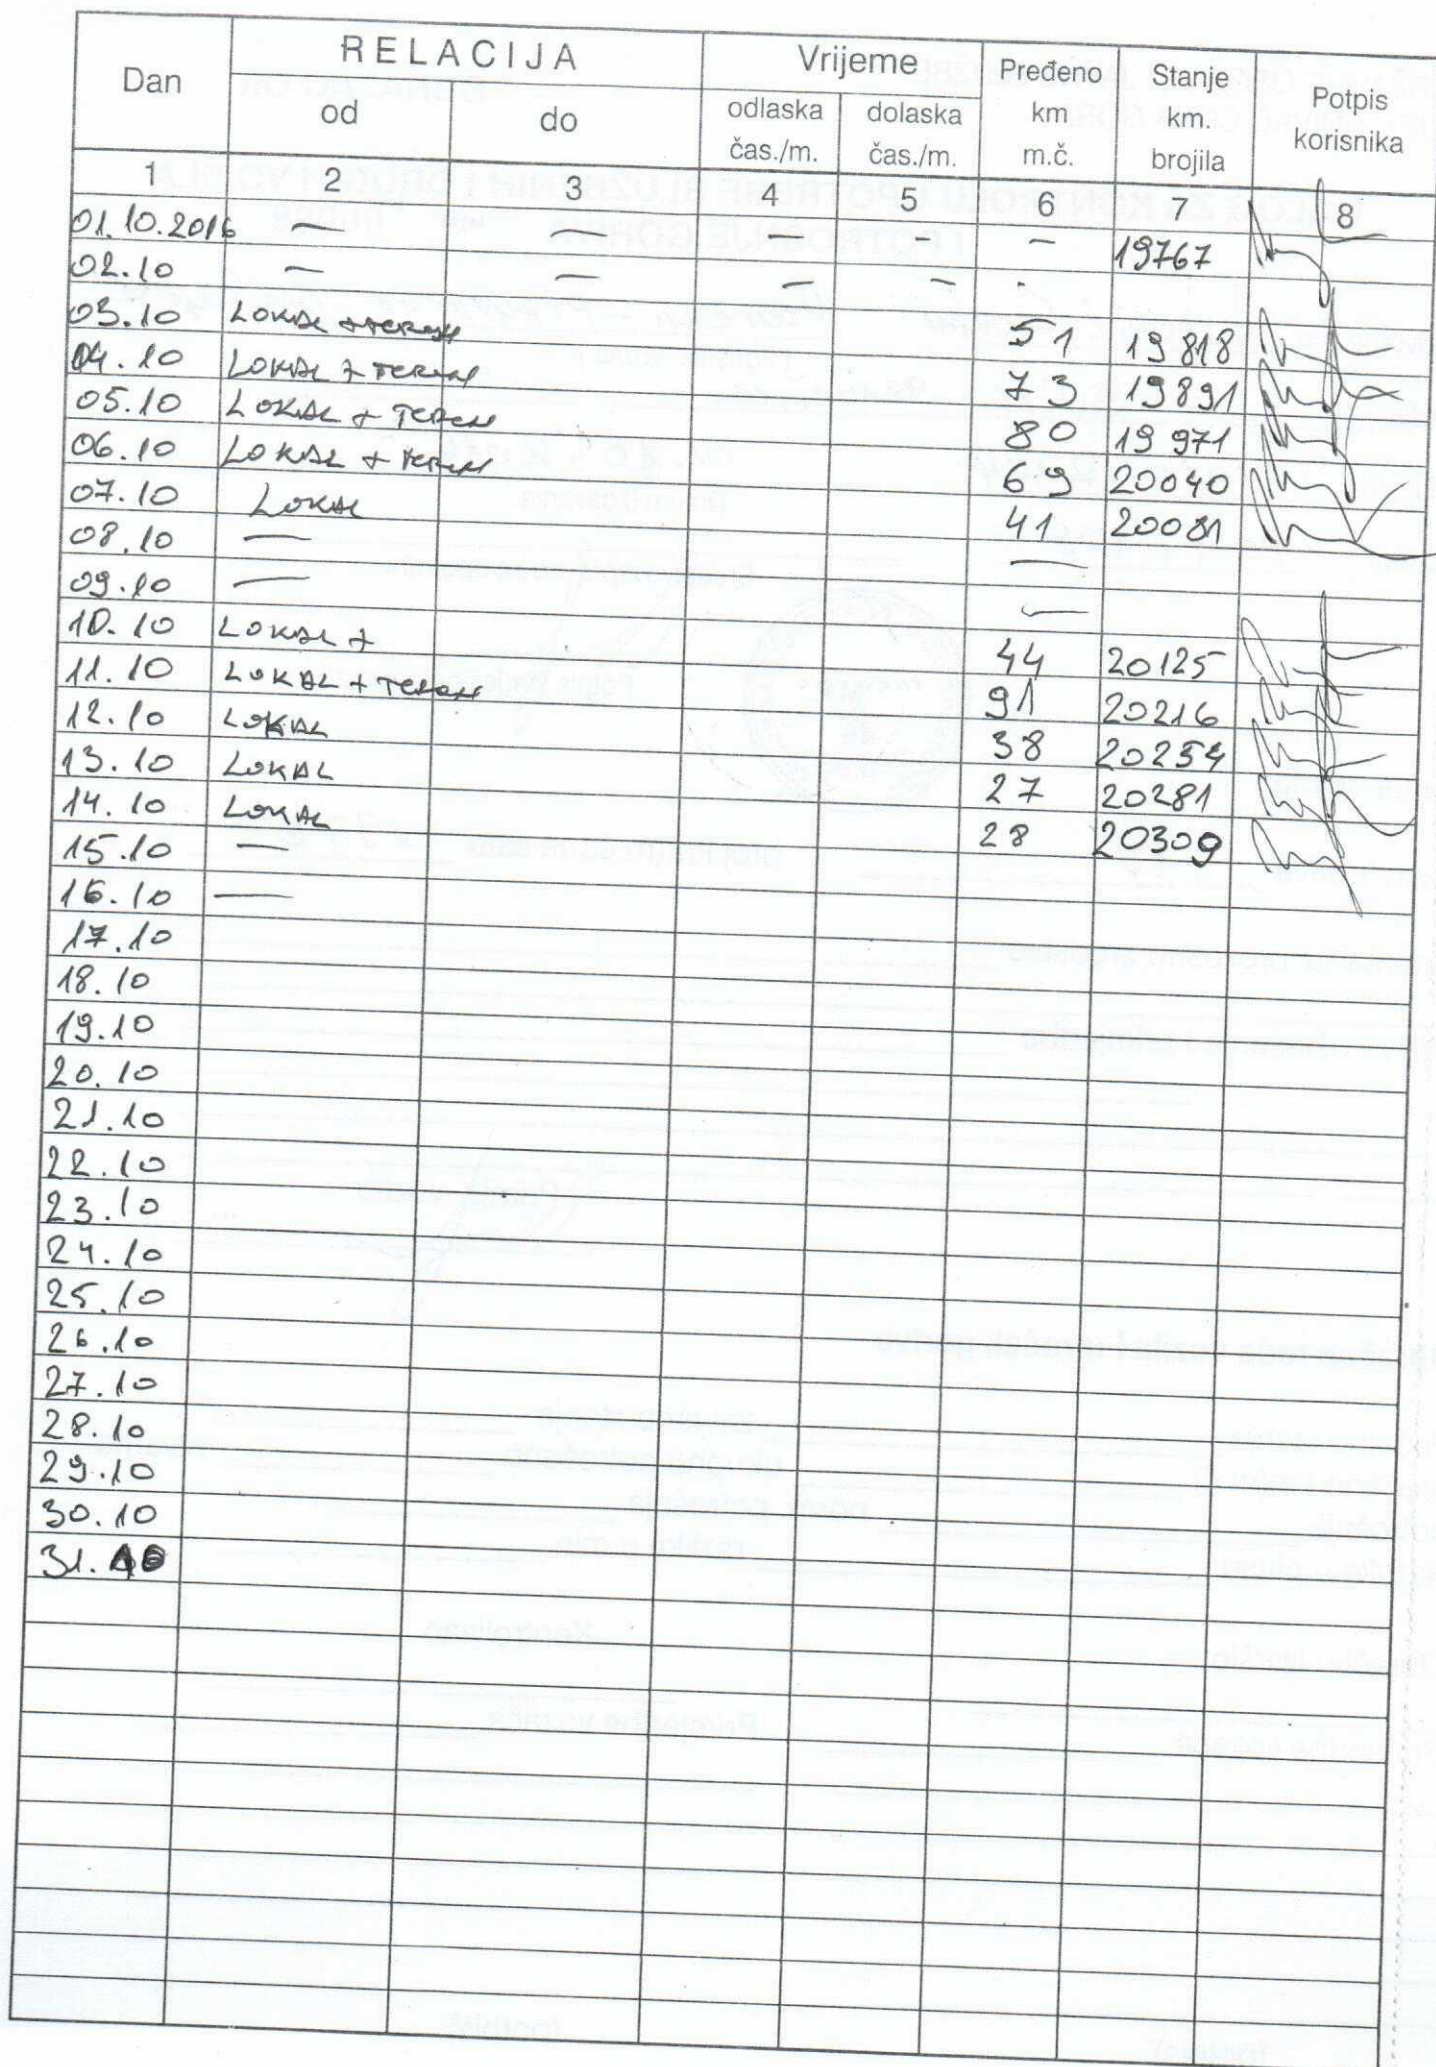 Dan RELACIJA Vrijeme Pređeno km m.č. Stanje km. brojila Potpis korisnika
od do odlaska čas./m. dolaska čas./m.
1 2 3 4 5 6 7 8
01.10.2016 — — — — — 19767
02.10 — — — — .
03.10 LOKAL + TEREN 51 19818
04.10 LOKAL + TEREN 73 19891
05.10 LOKAL + TEREN 80 19971
06.10 LOKAL + TEREN 69 20040
07.10 LOKAL 41 20081
08.10 — —
09.10 — —
10.10 LOKAL + 44 20125
11.10 LOKAL + TEREN 91 20216
12.10 LOKAL 38 20254
13.10 LOKAL 27 20281
14.10 LOKAL 28 20309
15.10 —
16.10 —
17.10
18.10
19.10
20.10
21.10
22.10
23.10
24.10
25.10
26.10
27.10
28.10
29.10
30.10
31.10